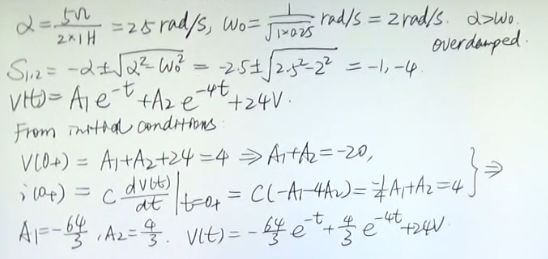 α = 5Ω / 2×1H = 25 rad/s, ω0 = 1/√(1×0.25) rad/s = 2 rad/s. α>ω0
overdamped.
S1,2 = -α±√(α²-ω0²) = -2.5±√(2.5²-2²) = -1, -4.
V(t) = A1 e^-t + A2 e^-4t + 24V.
From initial conditions
V(0+) = A1+A2+24 = 4 ⇒ A1+A2 = -20,
i(0+) = C dV(t)/dt |t=0+ = C(-A1-4A2) = -1/4 A1+A2 = 4 } ⇒
A1 = -64/3, A2 = 4/3. V(t) = -64/3 e^-t + 4/3 e^-4t + 24V